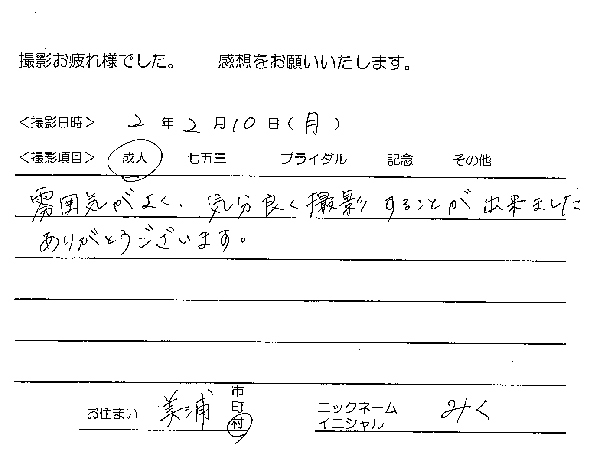 撮影お疲れ様でした。 感想をお願いいたします。
＜撮影日時＞ 2 年 2 月 10 日（月）
＜撮影項目＞ 成人 七五三 ブライダル 記念 その他
雰囲気がよく、気分良く撮影することが出来ました
ありがとうございます。
お住まい 美浦 市 町 村
ニックネーム みく
イニシャル